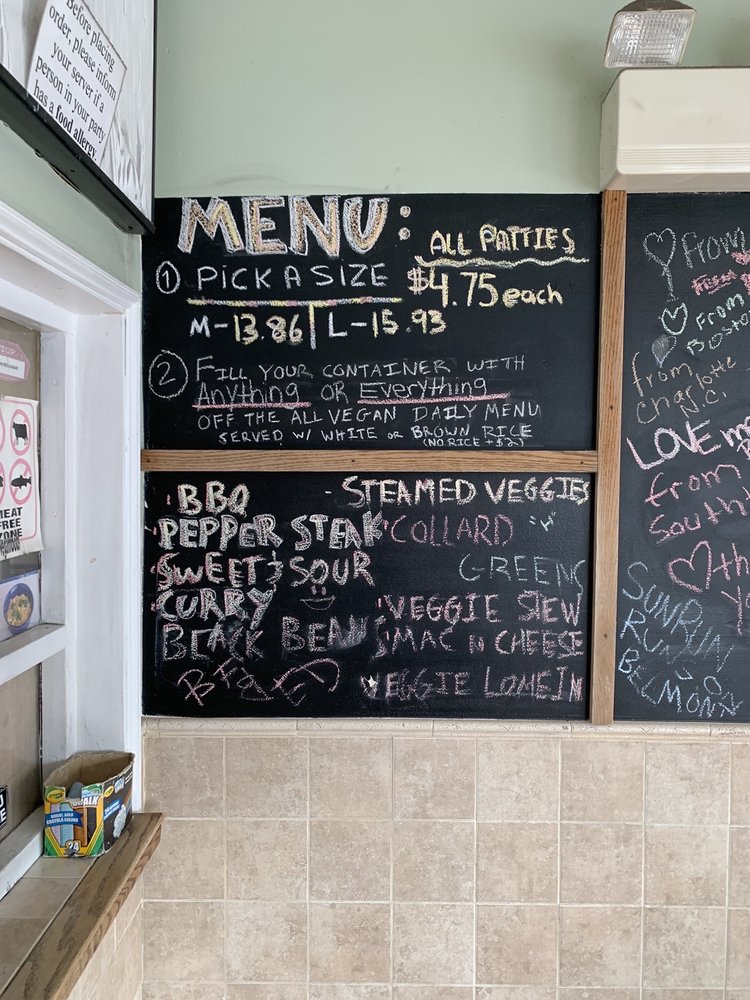 Before placing
order, please inform
your server if a
person in your party
has a food allergy.
MENU:
ALL PATTIES
$4.75 each
① PICK A SIZE
M-13.86 | L-15.93
② FILL YOUR CONTAINER WITH
Anything OR Everything
OFF THE ALL VEGAN DAILY MENU
SERVED W/ WHITE OR BROWN RICE
(NO RICE +$2)
BBQ
PEPPER STEAK
SWEET & SOUR
CURRY
BLACK BEAN
- STEAMED VEGGIES
COLLARD
GREENS
VEGGIE STEW
MAC N CHEESE
VEGGIE LOMEIN
From
From
Boston
from
Charlotte
N.C.
LOVE
from
South
SUNRUN
BELMONT
MEAT
FREE
ZONE
Crayola
CHALK
24